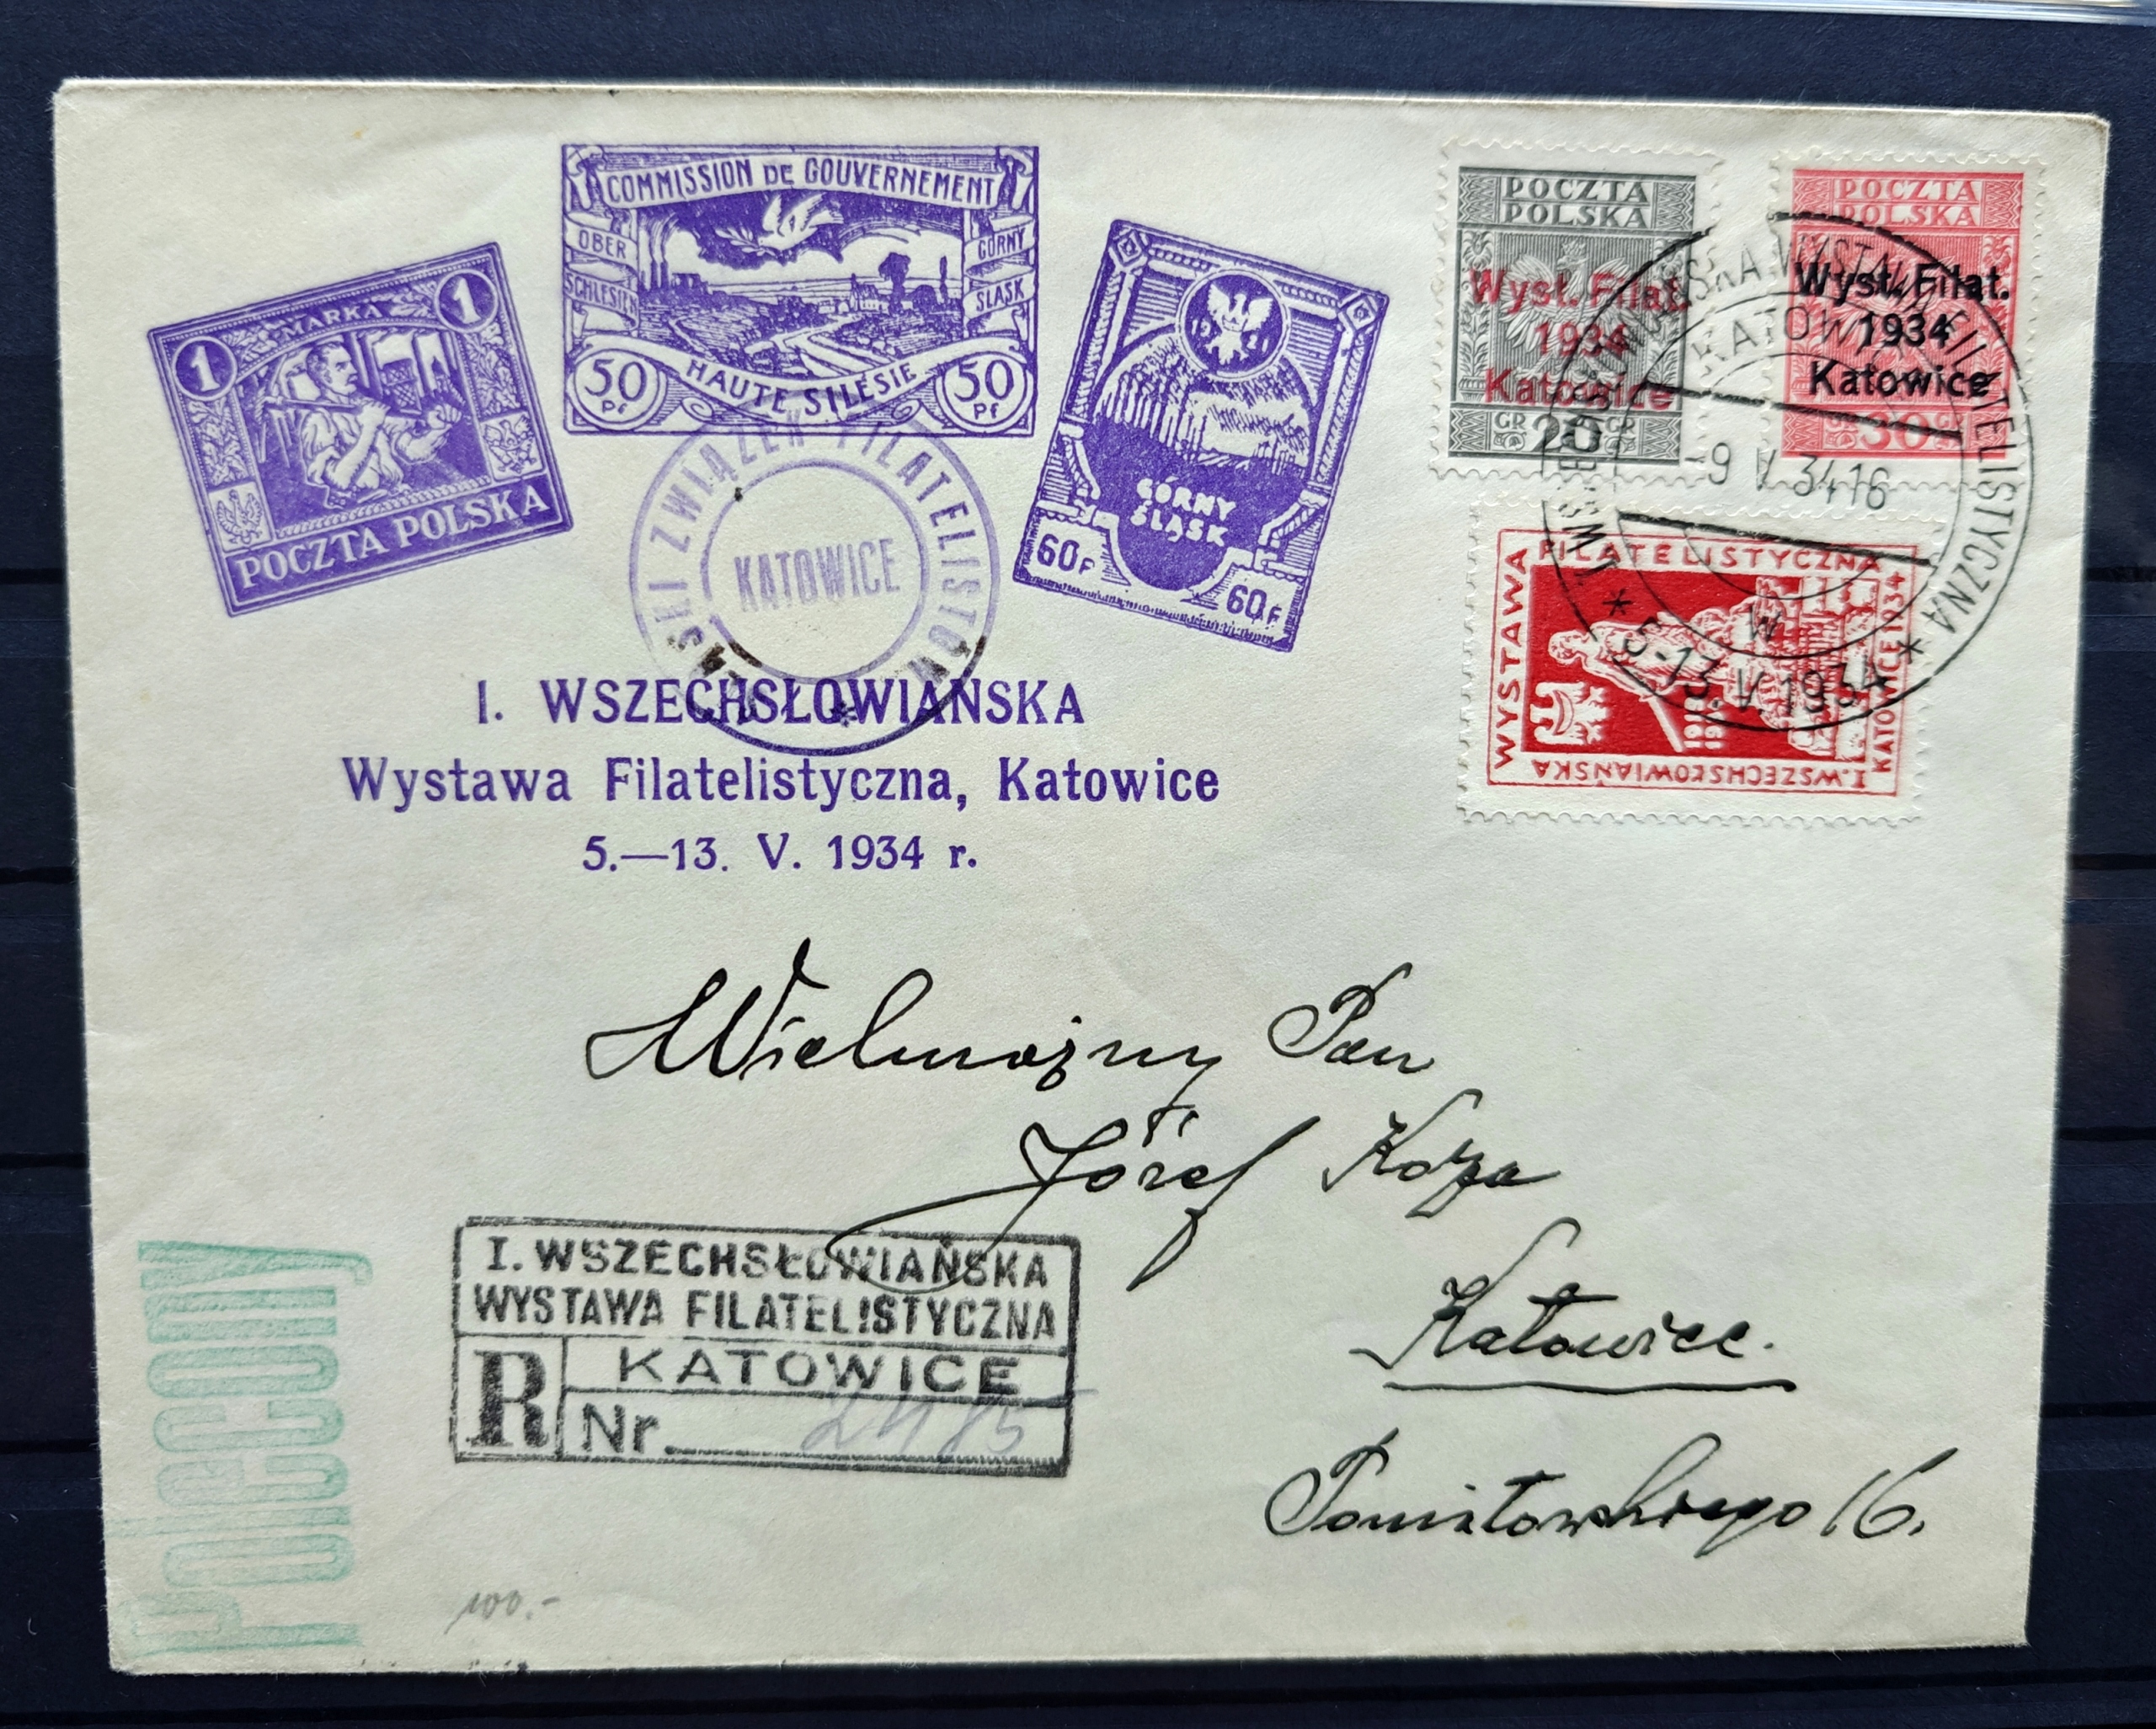 1
MARKA
1
POCZTA POLSKA
COMMISSION DE GOUVERNEMENT
OBER
SCHLESIEN
GÓRNY
ŚLĄSK
50
Pf
HAUTE SILÉSIE
50
Pf
19
21
GÓRNY
ŚLĄSK
60F
60F
POCZTA
POLSKA
Wyst. Filat.
1934
Katowice
GR 20 GR
POCZTA
POLSKA
Wyst. Filat.
1934
Katowice
30
WYSTAWA FILATELISTYCZNA
KATOWICE
-9 V. 34 16
W
* 5-13.V.1934 *
WYSTAWA
FILATELISTYCZNA
KATOWICE 1934
I. WSZECHSŁOWIAŃSKA
ŚLĄSKI ZWIĄZEK FILATELISTÓW
KATOWICE
*
I. WSZECHSŁOWIAŃSKA
Wystawa Filatelistyczna, Katowice
5.—13. V. 1934 r.
Wielmożny Pan
Józef Koza
Katowice.
Poniatowskiego 16.
I. WSZECHSŁOWIAŃSKA
WYSTAWA FILATELISTYCZNA
R
KATOWICE
Nr. 2485
Polecony
100.-